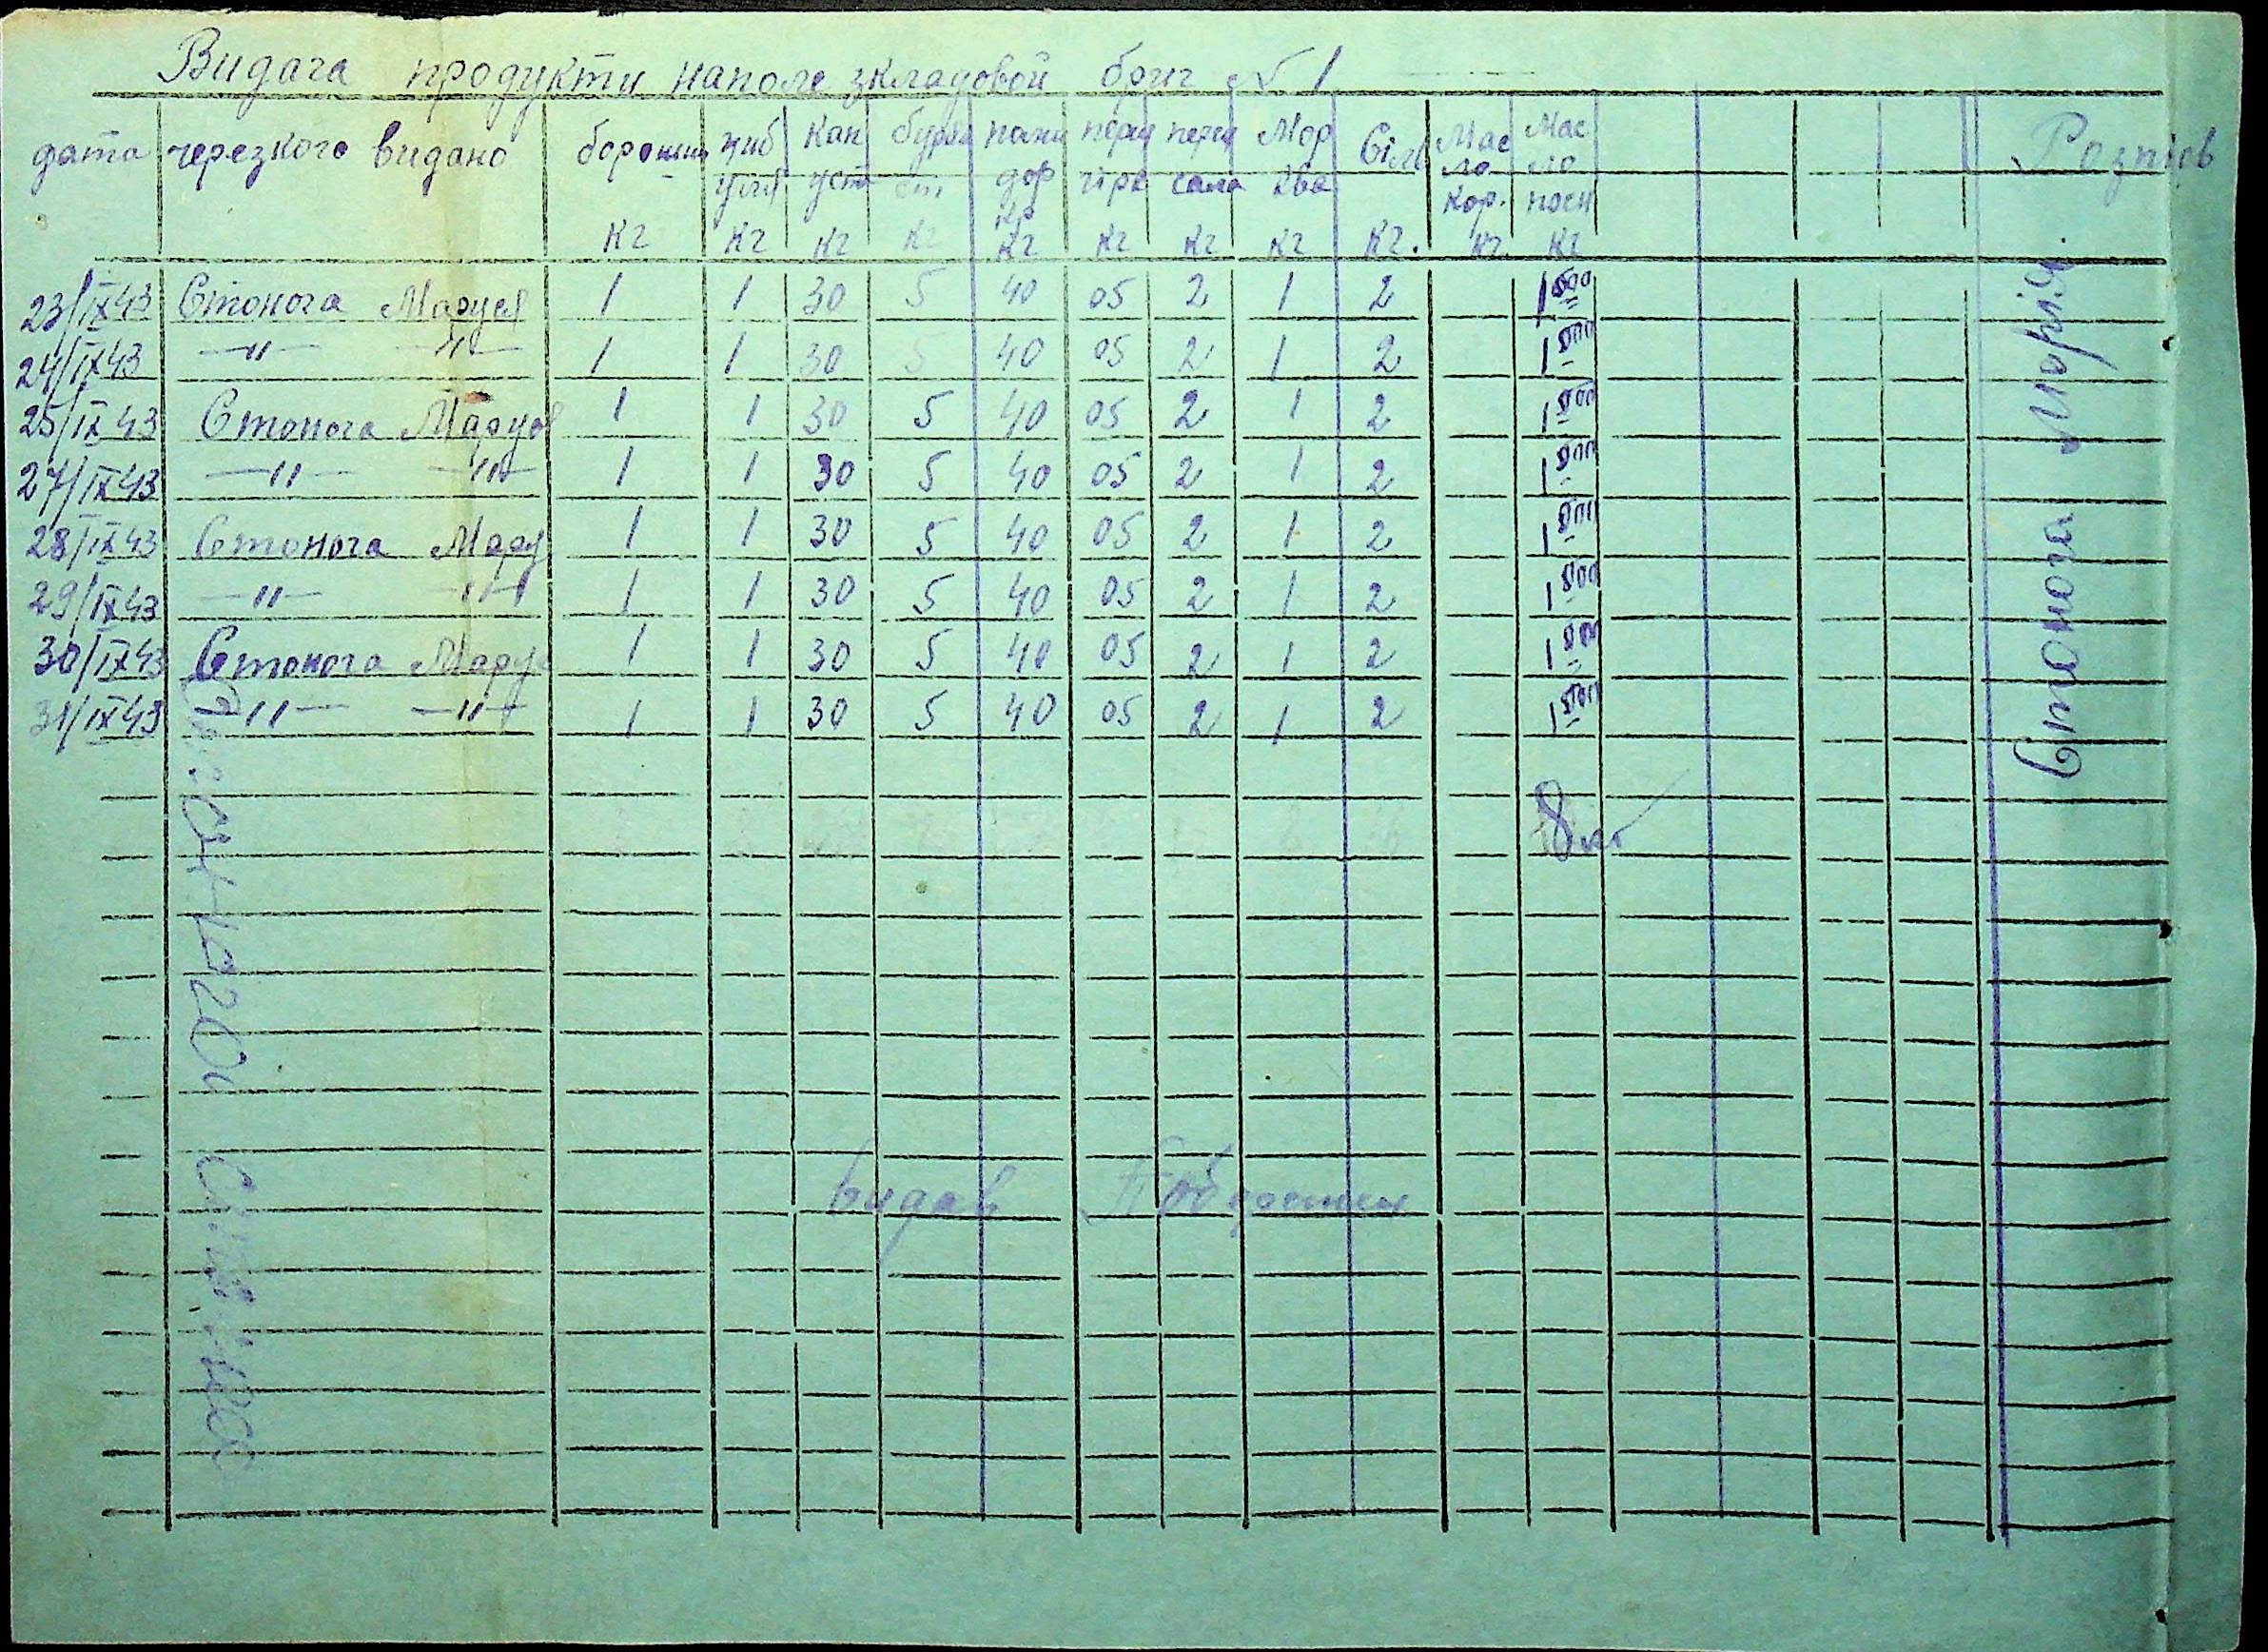 Видача продукти наполе зкладовой бриг № 1
дата черезкого видано борошно циб уля кап уста буряк помидор кр перц гірк перц сала Мор ква Сіль Мас ло кор. Мас ло посн Розпіов
кг кг кг кг кг кг кг кг кг. кг. кг
23/IX 43 Стонога Маруся 1 1 30 5 40 05 2 1 2 1 500
24/IX 43 —"— —"— 1 1 30 5 40 05 2 1 2 1 000
25/IX 43 Стонога Маруся 1 1 30 5 40 05 2 1 2 1 000
27/IX 43 —"— —"— 1 1 30 5 40 05 2 1 2 1 000
28/IX 43 Стонога Мару 1 1 30 5 40 05 2 1 2 1 000
29/IX 43 —"— —"— 1 1 30 5 40 05 2 1 2 1 000
30/IX 43 Стонога Мару 1 1 30 5 40 05 2 1 2 1 000
31/IX 43 —"— —"— 1 1 30 5 40 05 2 1 2 1 500
8 кг
видав
Стонога Марія.